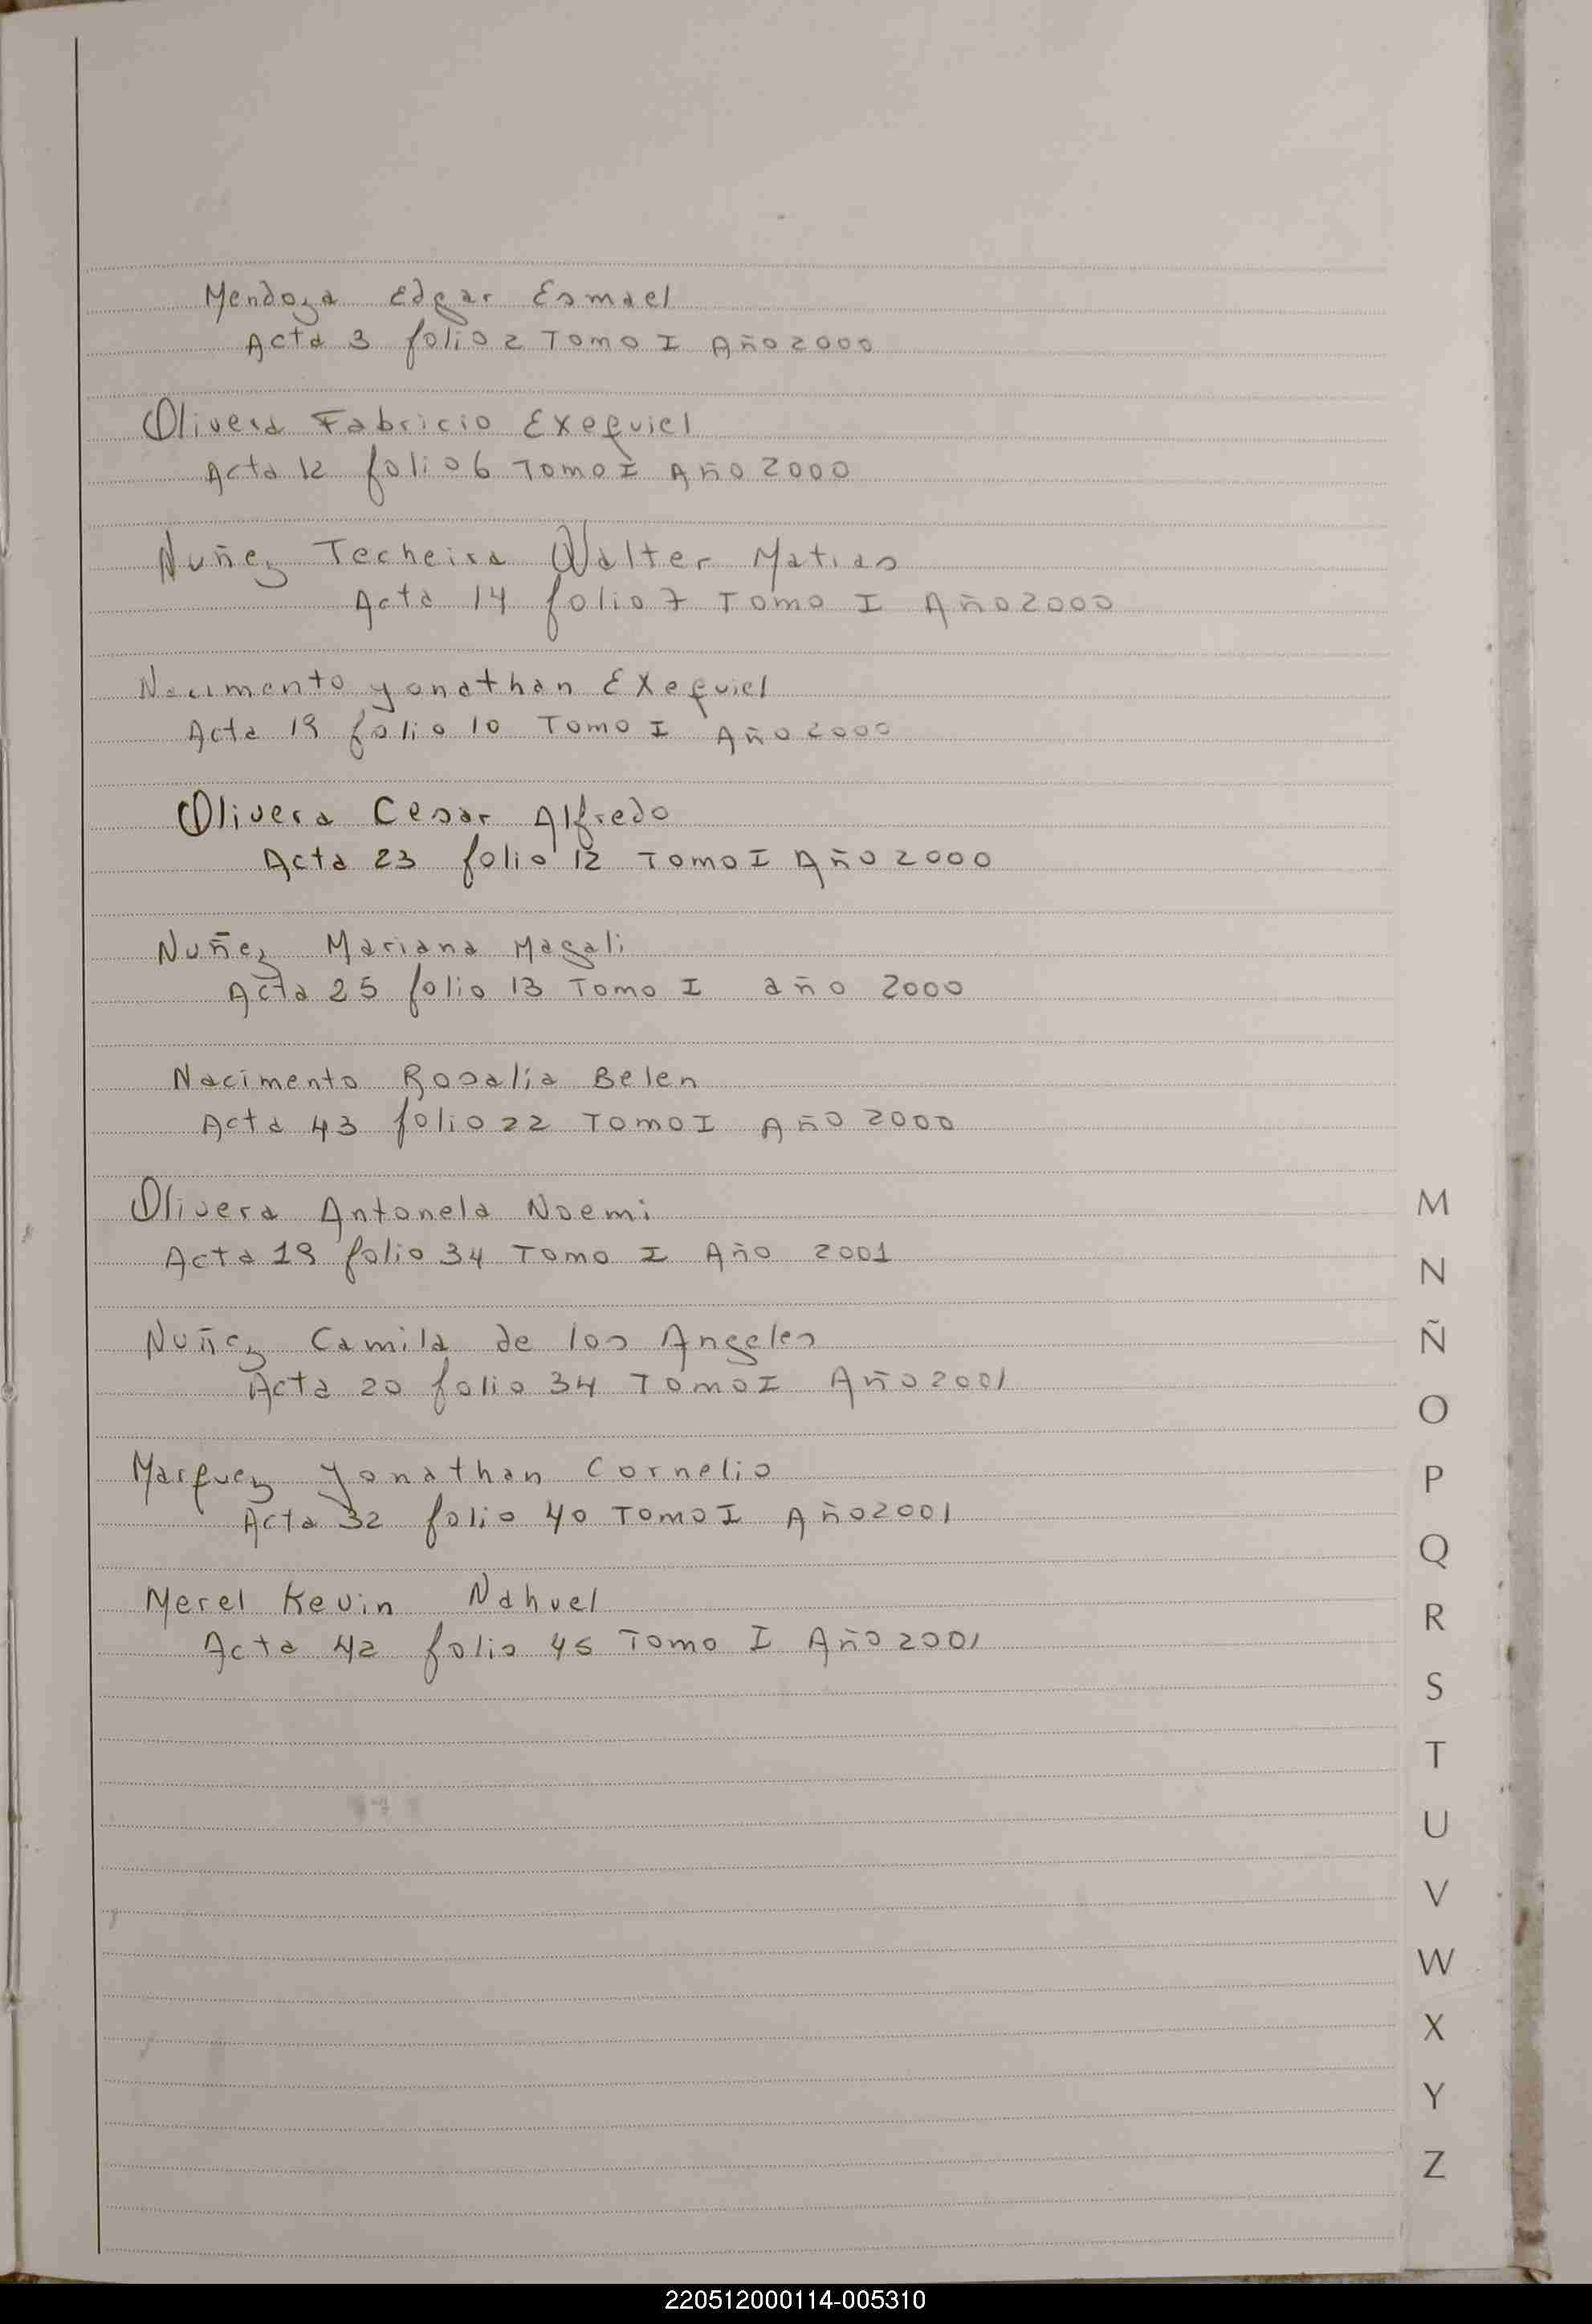 Mendoza Edgar Esmael
Acta 3 folio 2 Tomo I Año 2000
Olivera Fabricio Exequiel
Acta 12 folio 6 Tomo I Año 2000
Nuñez Techeira Walter Matias
Acta 14 folio 7 Tomo I Año 2000
Nacimento yonathan Exequiel
Acta 19 folio 10 Tomo I Año 2000
Olivera Cesar Alfredo
Acta 23 folio 12 Tomo I Año 2000
Nuñez Mariana Magali
Acta 25 folio 13 Tomo I año 2000
Nacimento Rosalia Belen
Acta 43 folio 22 Tomo I Año 2000
Olivera Antonela Noemi
Acta 19 folio 34 Tomo I Año 2001
Nuñez Camila de los Angeles
Acta 20 folio 34 Tomo I Año 2001
Marquez yonathan Cornelio
Acta 32 folio 40 Tomo I Año 2001
Merel Kevin Nahuel
Acta 42 folio 45 Tomo I Año 2001
M
N
Ñ
O
P
Q
R
S
T
U
V
W
X
Y
Z
220512000114-005310